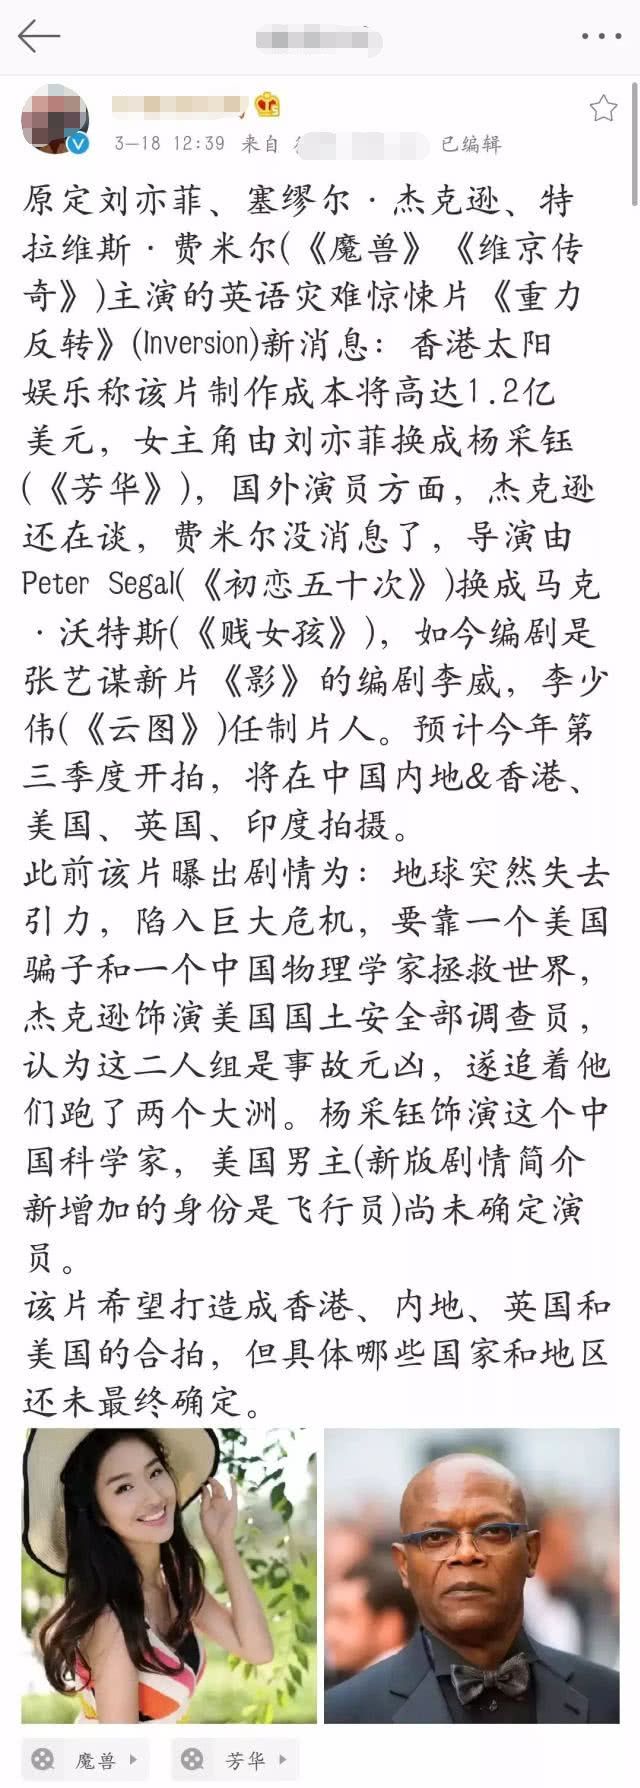 3-18 12:39 来自
已编辑
原定刘亦菲、塞缪尔·杰克逊、特
拉维斯·费米尔(《魔兽》《维京传
奇》)主演的英语灾难惊悚片《重力
反转》(Inversion)新消息：香港太阳
娱乐称该片制作成本将高达1.2亿
美元，女主角由刘亦菲换成杨采钰
(《芳华》)，国外演员方面，杰克逊
还在谈，费米尔没消息了，导演由
Peter Segal(《初恋五十次》)换成马克
·沃特斯(《贱女孩》)，如今编剧是
张艺谋新片《影》的编剧李威，李少
伟(《云图》)任制片人。预计今年第
三季度开拍，将在中国内地&香港、
美国、英国、印度拍摄。
此前该片曝出剧情为：地球突然失去
引力，陷入巨大危机，要靠一个美国
骗子和一个中国物理学家拯救世界，
杰克逊饰演美国国土安全部调查员，
认为这二人组是事故元凶，遂追着他
们跑了两个大洲。杨采钰饰演这个中
国科学家，美国男主(新版剧情简介
新增加的身份是飞行员)尚未确定演
员。
该片希望打造成香港、内地、英国和
美国的合拍，但具体哪些国家和地区
还未最终确定。
魔兽
芳华